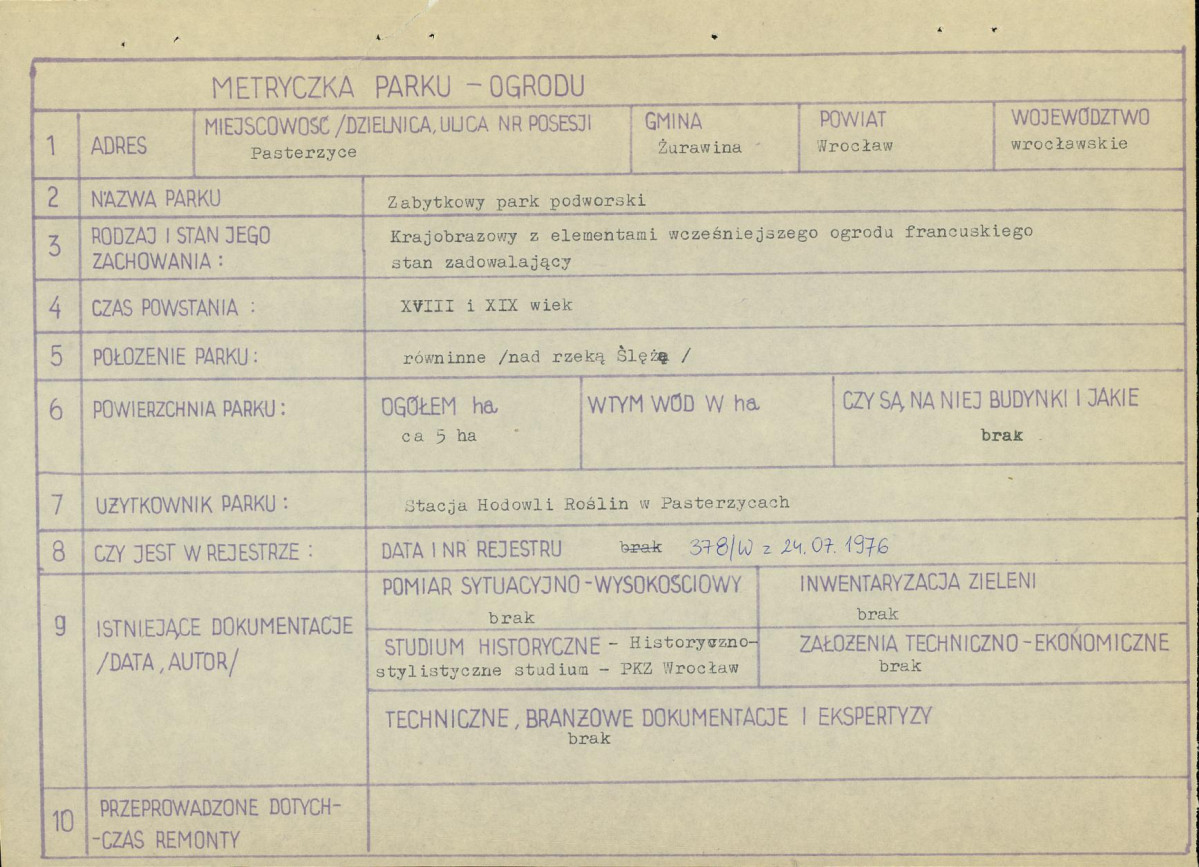 METRYCZKA PARKU – OGRODU
1 ADRES
MIEJSCOWOŚĆ /DZIELNICA, ULICA NR POSESJI
Pasterzyce
GMINA
Żurawina
POWIAT
Wrocław
WOJEWÓDZTWO
wrocławskie
2 NAZWA PARKU
Zabytkowy park podworski
3 RODZAJ I STAN JEGO
ZACHOWANIA :
Krajobrazowy z elementami wcześniejszego ogrodu francuskiego
stan zadowalający
4 CZAS POWSTANIA :
XVIII i XIX wiek
5 POŁOŻENIE PARKU :
równinne /nad rzeką Ślężą /
6 POWIERZCHNIA PARKU :
OGÓŁEM ha
ca 5 ha
W TYM WÓD W ha
CZY SĄ NA NIEJ BUDYNKI I JAKIE
brak
7 UŻYTKOWNIK PARKU :
Stacja Hodowli Roślin w Pasterzycach
8 CZY JEST W REJESTRZE :
DATA I NR REJESTRU brak 378/W z 24.07.1976
9 ISTNIEJĄCE DOKUMENTACJE
/DATA, AUTOR/
POMIAR SYTUACYJNO – WYSOKOŚCIOWY
brak
INWENTARYZACJA ZIELENI
brak
STUDIUM HISTORYCZNE – Historyczno-
stylistyczne studium – PKZ Wrocław
ZAŁOŻENIA TECHNICZNO – EKONOMICZNE
brak
TECHNICZNE, BRANŻOWE DOKUMENTACJE I EKSPERTYZY
brak
10 PRZEPROWADZONE DOTYCH-
-CZAS REMONTY